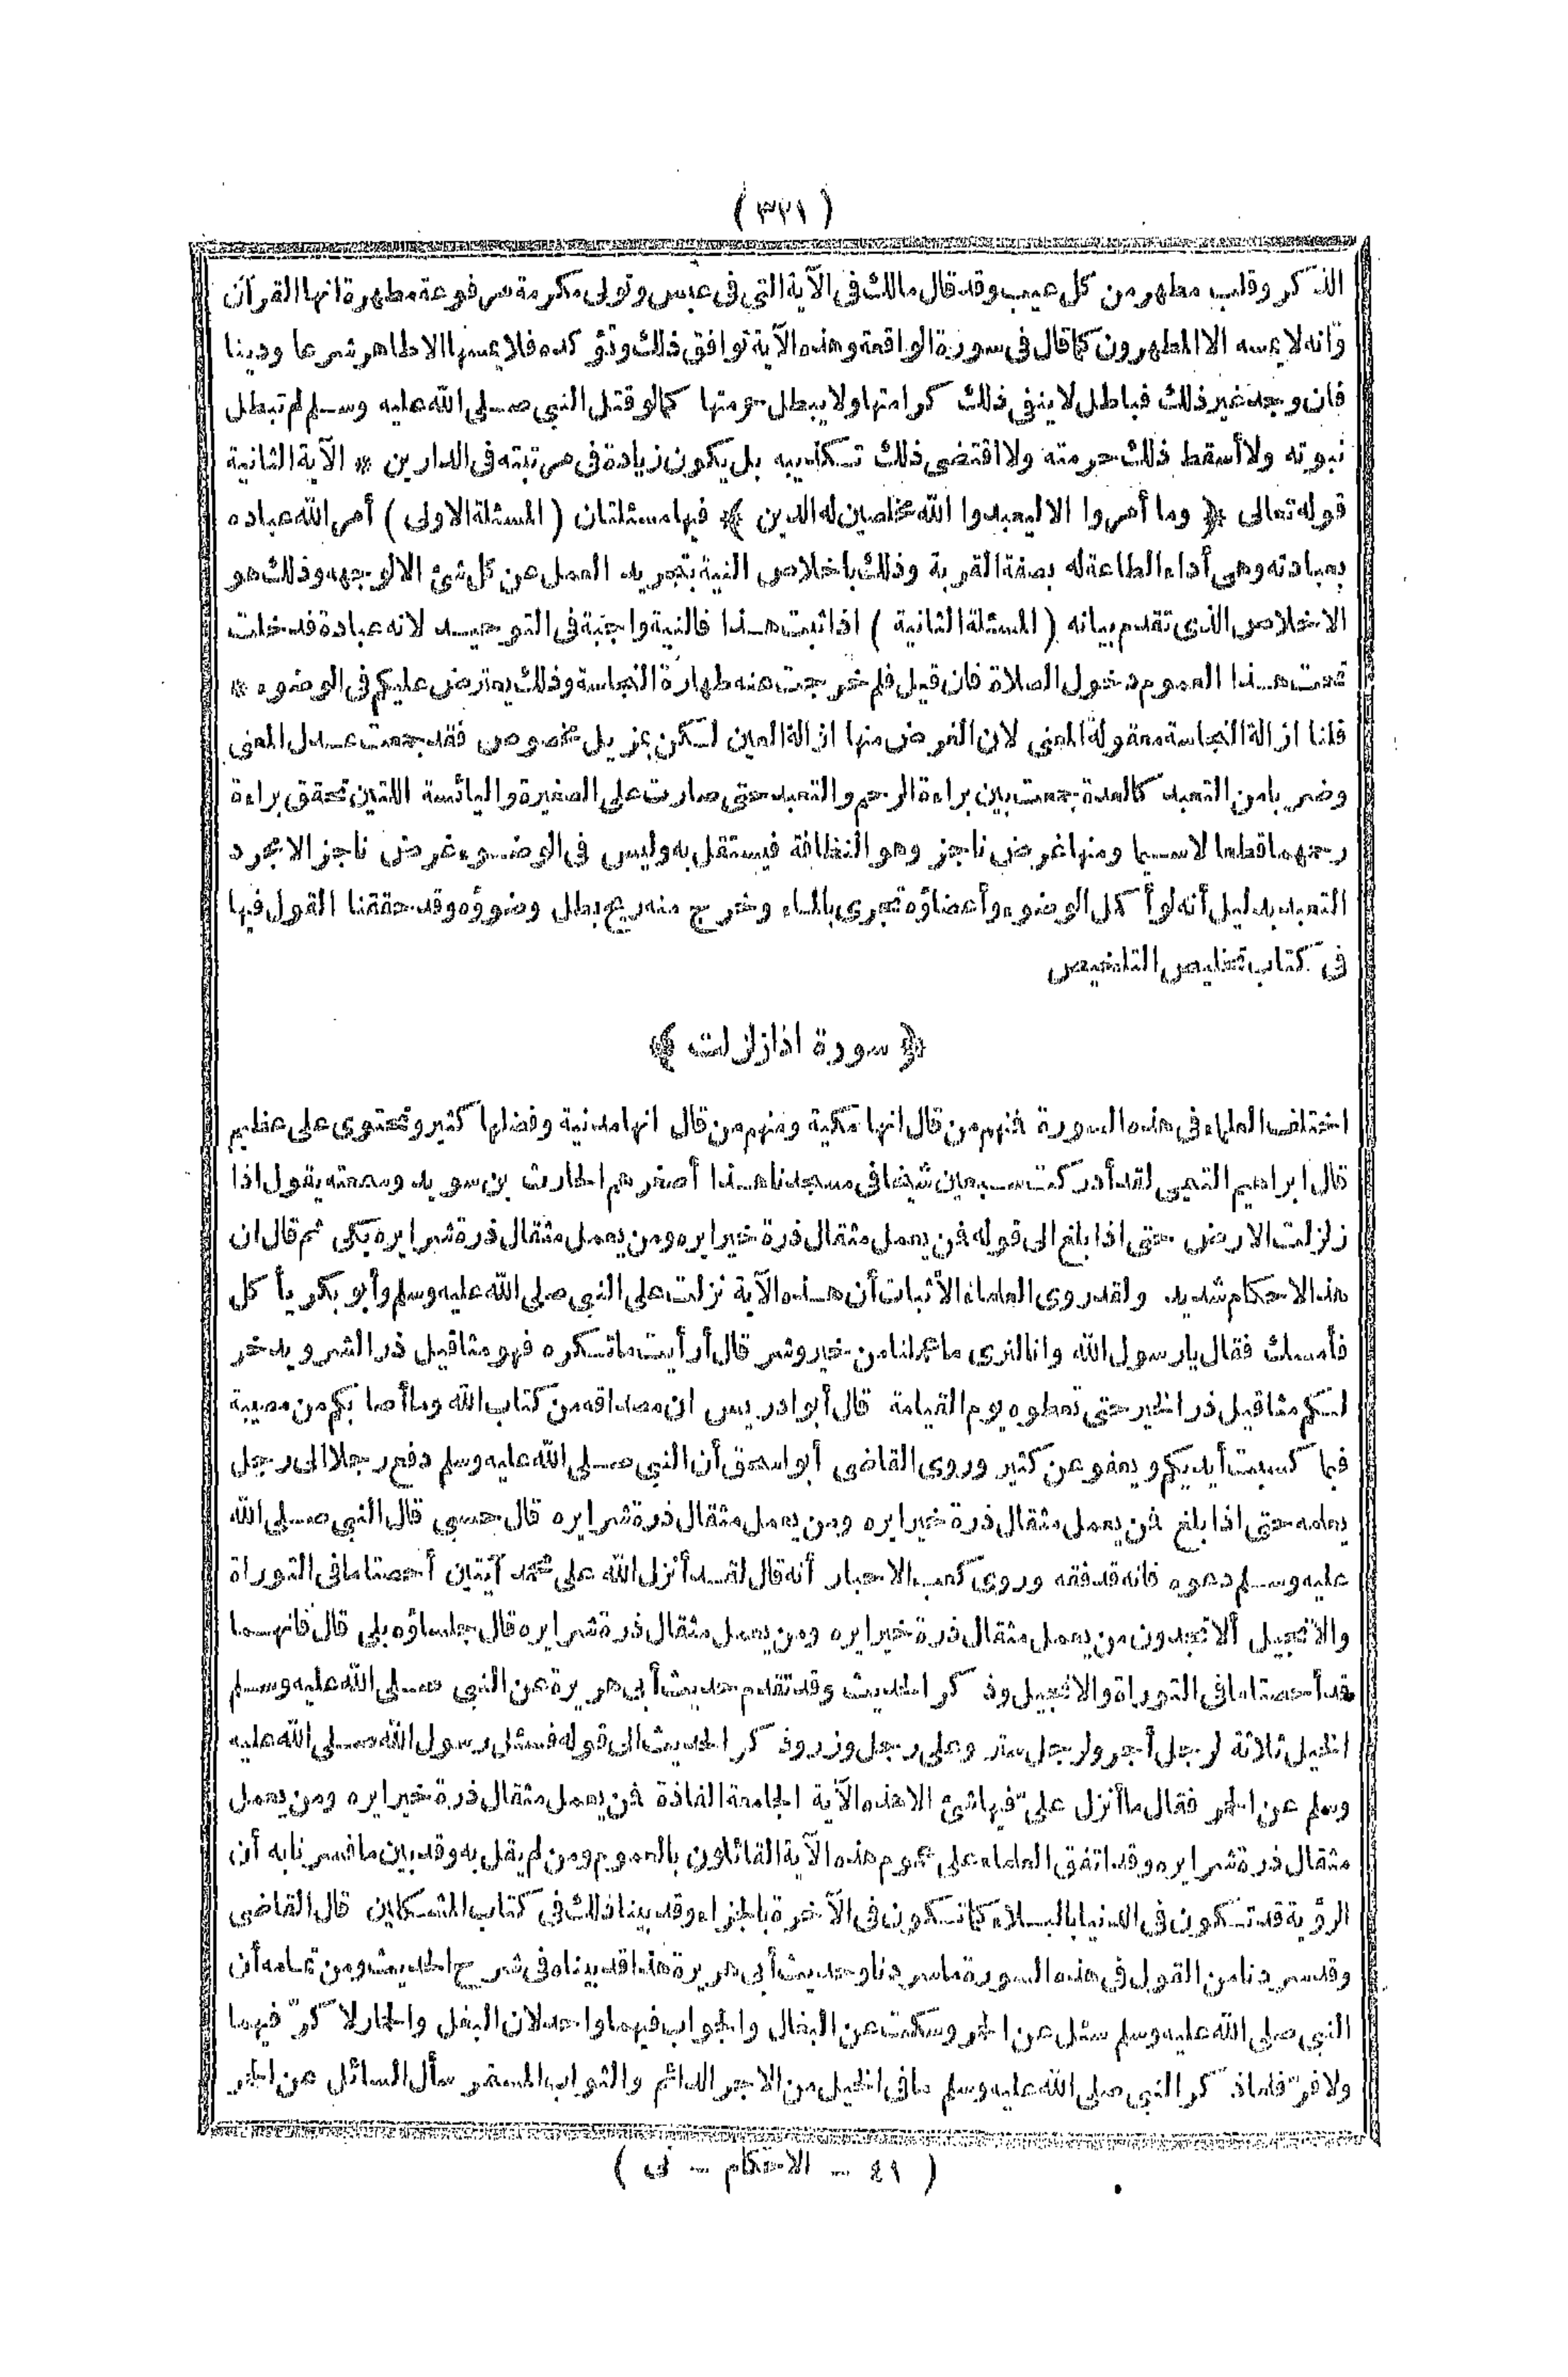 (٣٢١)
الذكر وقلب مطهر من كل عيب وقد قال مالك في الآية التي في عبس وتولى مكرمة مرفوعة مطهرة انها القرآن
وانه لا يمسه الا المطهرون كما قال في سورة الواقعة وهذه الآية توافق ذلك وتؤكده فلا يمسها الا طاهر شرعا ودينا
فان وجد غير ذلك فباطل لا ينفي ذلك كرامتها ولا يبطل حرمتها كما لو قتل النبي صلى الله عليه وسلم لم تبطل
نبوته ولا أسقط ذلك حرمته ولا اقتضى ذلك تكذيبه بل يكون زيادة في مرتبته في الدارين * الآية الثانية
قوله تعالى ﴿ وما أمروا الا ليعبدوا الله مخلصين له الدين ﴾ فيها مسئلتان (المسئلة الاولى) أمر الله عباده
بعبادته وهى أداء الطاعة له بصفة القربة وذلك باخلاص النية بتجريد العمل عن كل شئ الا لوجهه وذلك هو
الاخلاص الذى تقدم بيانه (المسئلة الثانية) اذا ثبت هذا فالنية واجبة في التوحيد لانه عبادة فدخلت
تحت هذا العموم دخول الصلاة فان قيل فلم خرجت عنه طهارة النجاسة وذلك يعترض عليكم في الوضوء *
قلنا ازالة النجاسة معقولة المعنى لان الغرض منها ازالة العين لكن بمزيل مخصوص فقد جمعت عدل المعنى
وضربا من التعبد كالعدة جمعت بين براءة الرحم والتعبد حتى صارت على الصغيرة واليائسة اللتين تحقق براءة
رحمهما قطعا لاسيما ومنها غرض ناجز وهو النظافة فيستقل به وليس في الوضوء غرض ناجز الا مجرد
التعبد بدليل أنه لو أكمل الوضوء وأعضاؤه تجرى بالماء وخرج منه ريح بطل وضوؤه وقد حققنا القول فيها
في كتاب تخليص التلخيص
﴿ سورة اذا زلزلت ﴾
اختلف العلماء في هذه السورة فمنهم من قال انها مكية ومنهم من قال انها مدنية وفضلها كثير وتحتوى على عظيم
قال ابراهيم التيمى لقد أدركت سبعين شيخا في مسجدنا هذا أصغرهم الحارث بن سويد وسمعته يقول اذا
زلزلت الارض حتى اذا بلغ الى قوله فمن يعمل مثقال ذرة خيرا يره ومن يعمل مثقال ذرة شرا يره بكى ثم قال ان
هذه الاحكام شديد ولقد روى العلماء الأثبات أن هذه الآية نزلت على النبي صلى الله عليه وسلم وأبو بكر يأكل
فأمسك فقال يارسول الله وانا لنرى ما عملنا من خير وشر قال أرأيت ما تكره فهو مثاقيل ذر الشر ويدخر
لكم مثاقيل ذر الخير حتى تعطوه يوم القيامة قال أبو ادريس ان مصداقه من كتاب الله وما أصابكم من مصيبة
فبما كسبت أيديكم ويعفو عن كثير وروى القاضى أبو اسحق أن النبي صلى الله عليه وسلم دفع رجلا الى رجل
يعلمه حتى اذا بلغ فمن يعمل مثقال ذرة خيرا يره ومن يعمل مثقال ذرة شرا يره قال حسبي قال النبي صلى الله
عليه وسلم دعوه فانه قد فقه وروى كعب الاحبار أنه قال لقد أنزل الله على محمد آيتين أحصتا ما في التوراة
والانجيل ألا تجدون من يعمل مثقال ذرة خيرا يره ومن يعمل مثقال ذرة شرا يره قال جلساؤه بلى قال فانهما
قد أحصتا ما في التوراة والانجيل وذكر الحديث وقد تقدم حديث أبى هريرة عن النبي صلى الله عليه وسلم
الخيل ثلاثة لرجل أجر ولرجل ستر وعلى رجل وزر وذكر الحديث الى قوله فسئل رسول الله صلى الله عليه
وسلم عن الحمر فقال ما أنزل علىّ فيها شئ الا هذه الآية الجامعة الفاذة فمن يعمل مثقال ذرة خيرا يره ومن يعمل
مثقال ذرة شرا يره وقد اتفق العلماء على عموم هذه الآية القائلون بالعموم ومن لم يقل به وقد بين ما فسرنا به أن
الرؤية قد تكون في الدنيا بالبلاء كما تكون في الآخرة بالجزاء وقد بينا ذلك في كتاب المشكلين قال القاضى
وقد سردنا من القول في هذه السورة ما سردنا وحديث أبى هريرة هذا قد بيناه في شرح الحديث ومن تمامه أن
النبي صلى الله عليه وسلم سئل عن الحمر وسكت عن البغال والجواب فيهما واحد لان البغل والحمار لا كرّ فيهما
ولا فرّ فلما ذكر النبي صلى الله عليه وسلم ما في الخيل من الاجر الدائم والثواب المستمر سأل السائل عن الحمر
(٤١ - الاحكام - نى)